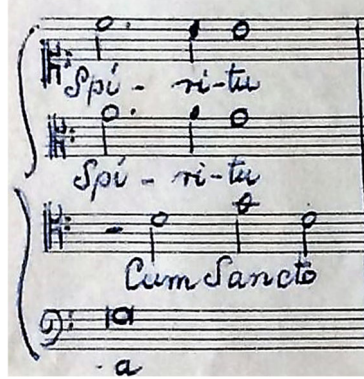 Spí - ri-tu
Spí - ri-tu
Cum Sancto
a